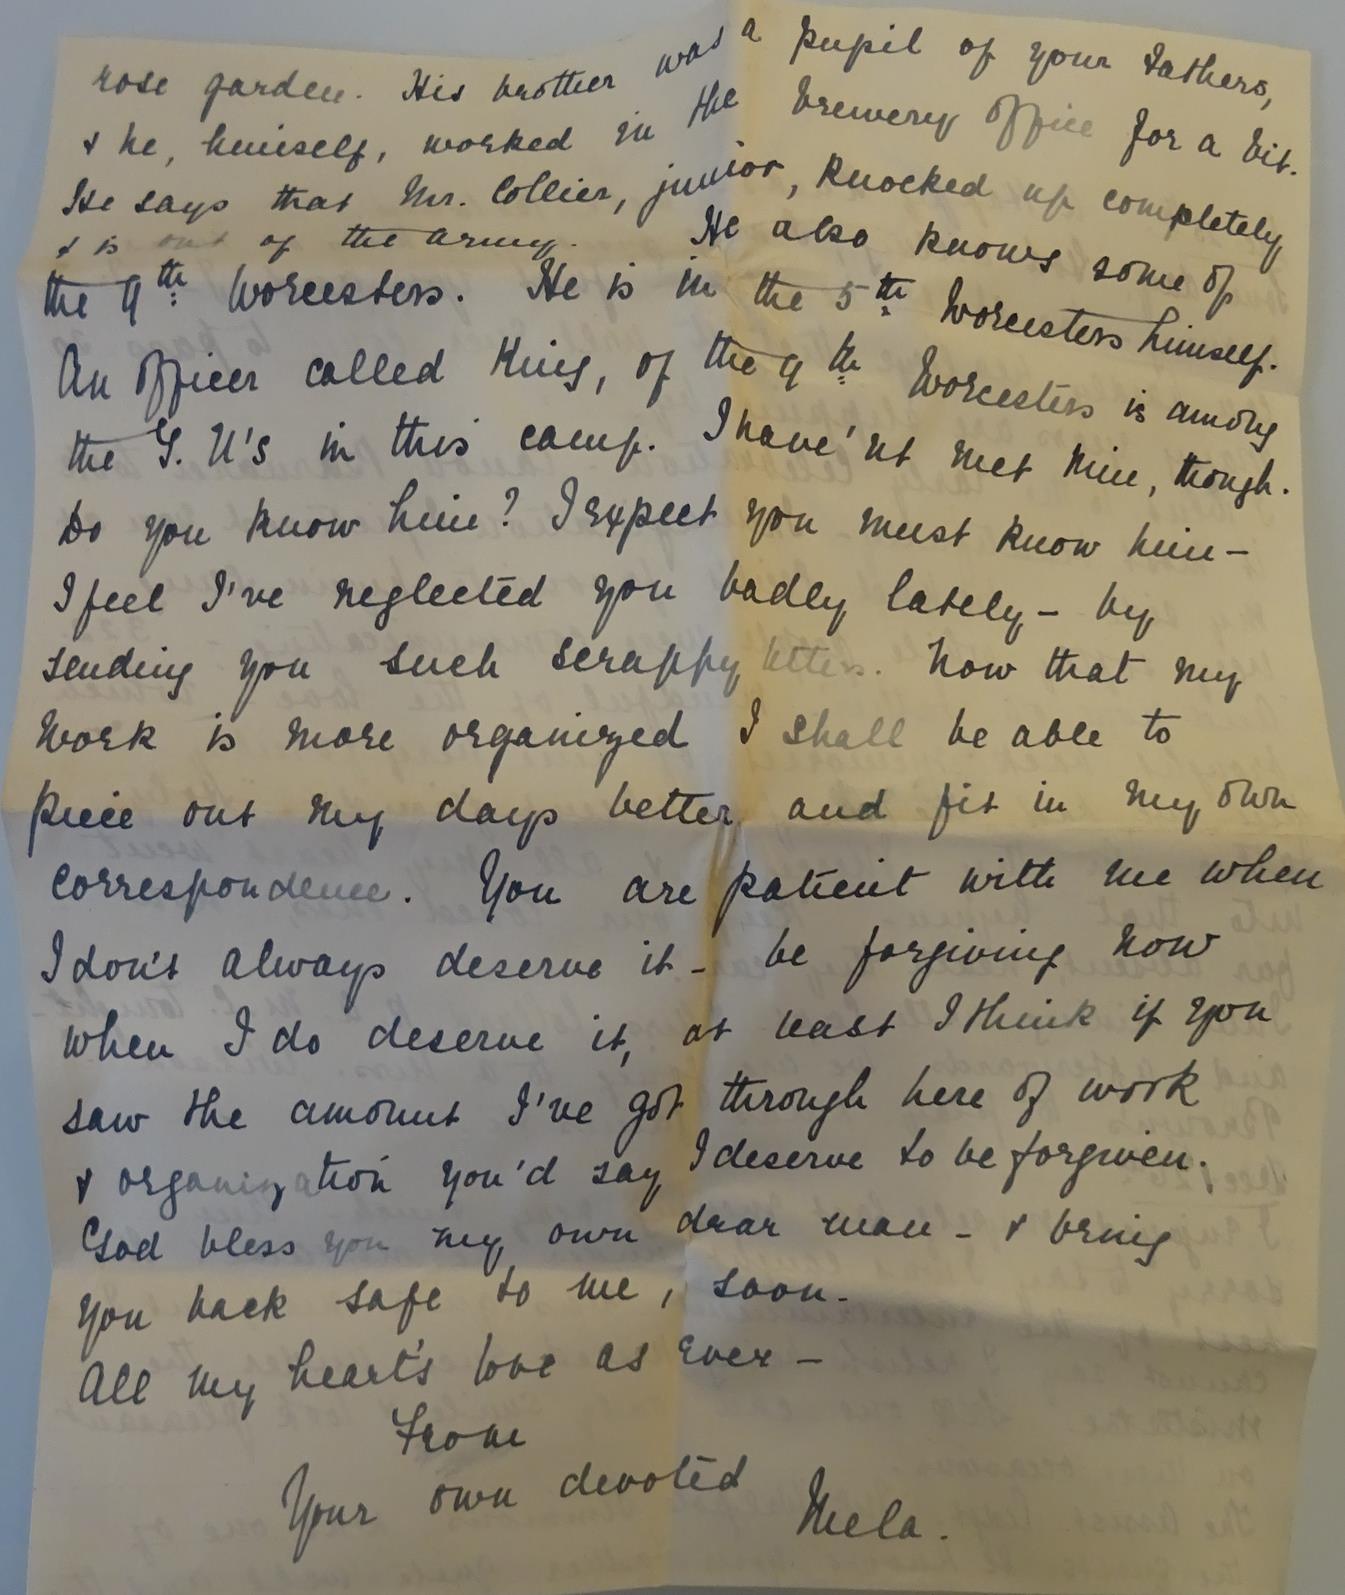 rose garden. His brother was a pupil of your fathers,
& he, himself, worked in the brewery office for a bit.
He says that Mr. Collier, junior, knocked up completely
& is out of the army. He also knows some of
the 9th Worcesters. He is in the 5th Worcesters himself.
An officer called King, of the 9th Worcesters is among
the G. U's in this camp. I have'nt met him, though.
Do you know him? I expect you must know him —
I feel I've neglected you badly lately — by
sending you such scrappy letters. Now that my
work is more organized I shall be able to
piece out my days better, and fit in my own
correspondence. You are patient with me when
I don't always deserve it — be forgiving now
when I do deserve it, at least I think if you
saw the amount I've got through here of work
& organization you'd say I deserve to be forgiven.
God bless you my own dear man — & bring
you back safe to me, soon —
All my heart's love as ever —
From
Your own devoted
Mela.